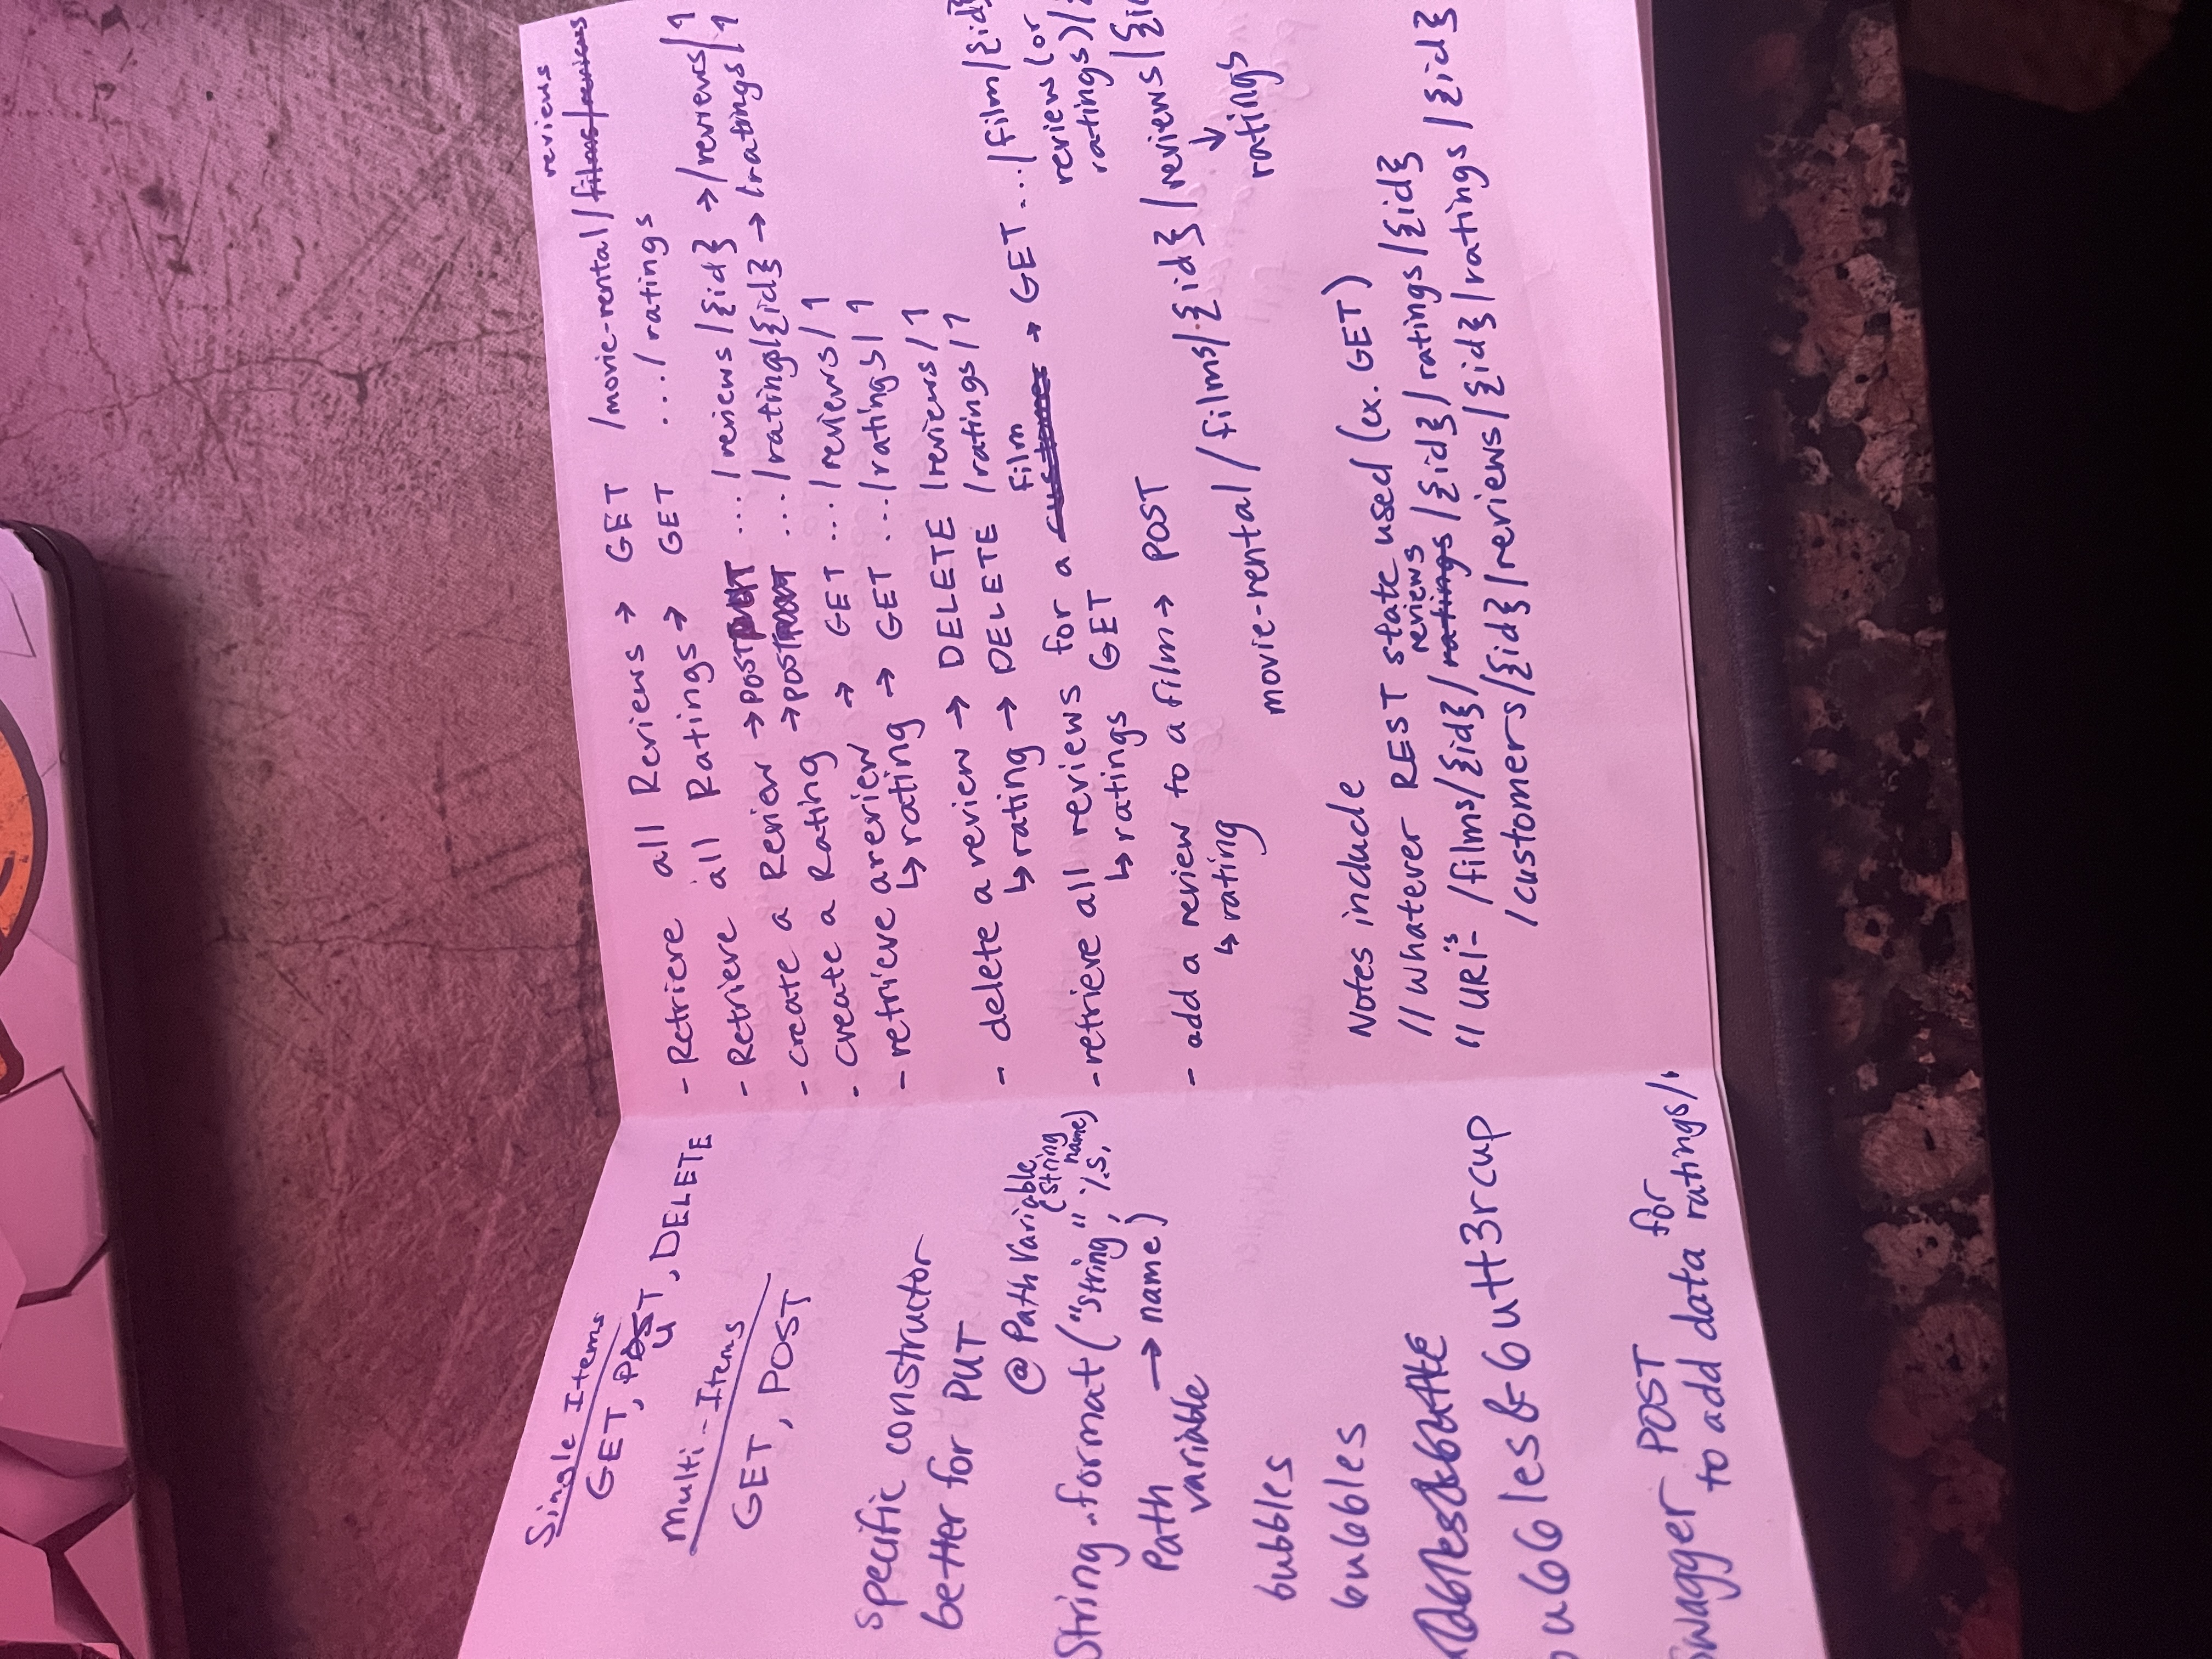 Single Items
GET, PUT, DELETE
Multi-Items
GET, POST
specific constructor
better for PUT
@PathVariable
(String
name)
String.format("string", %s,
Path → name)
variable
bubbles
6u66les
6u66les&6utt3rcup
Swagger POST
for
to add data ratings/
reviews
- Retrieve all Reviews → GET /movie-rental/films/reviews
- Retrieve all Ratings → GET .../ratings
- create a Review → POST PUT ... /reviews/{id} → /reviews/1
- create a Rating → POST ... /ratings/{id} → /ratings/1
- retrieve a review → GET .../reviews/1
↳ rating → GET .../ratings/1
- delete a review → DELETE /reviews/1
↳ rating → DELETE /ratings/1
film
- retrieve all reviews for a customer → GET .../film/{id}
review (or
ratings)/
↳ ratings GET
- add a review to a film → POST
↳ rating
movie-rental/films/{id}/reviews/{id
↓
ratings
Notes include
// whatever REST state used (ex. GET)
reviews
// URI's - /films/{id}/ratings/{id}/ratings/{id}
/customers/{id}/reviews/{id}/ratings/{id}